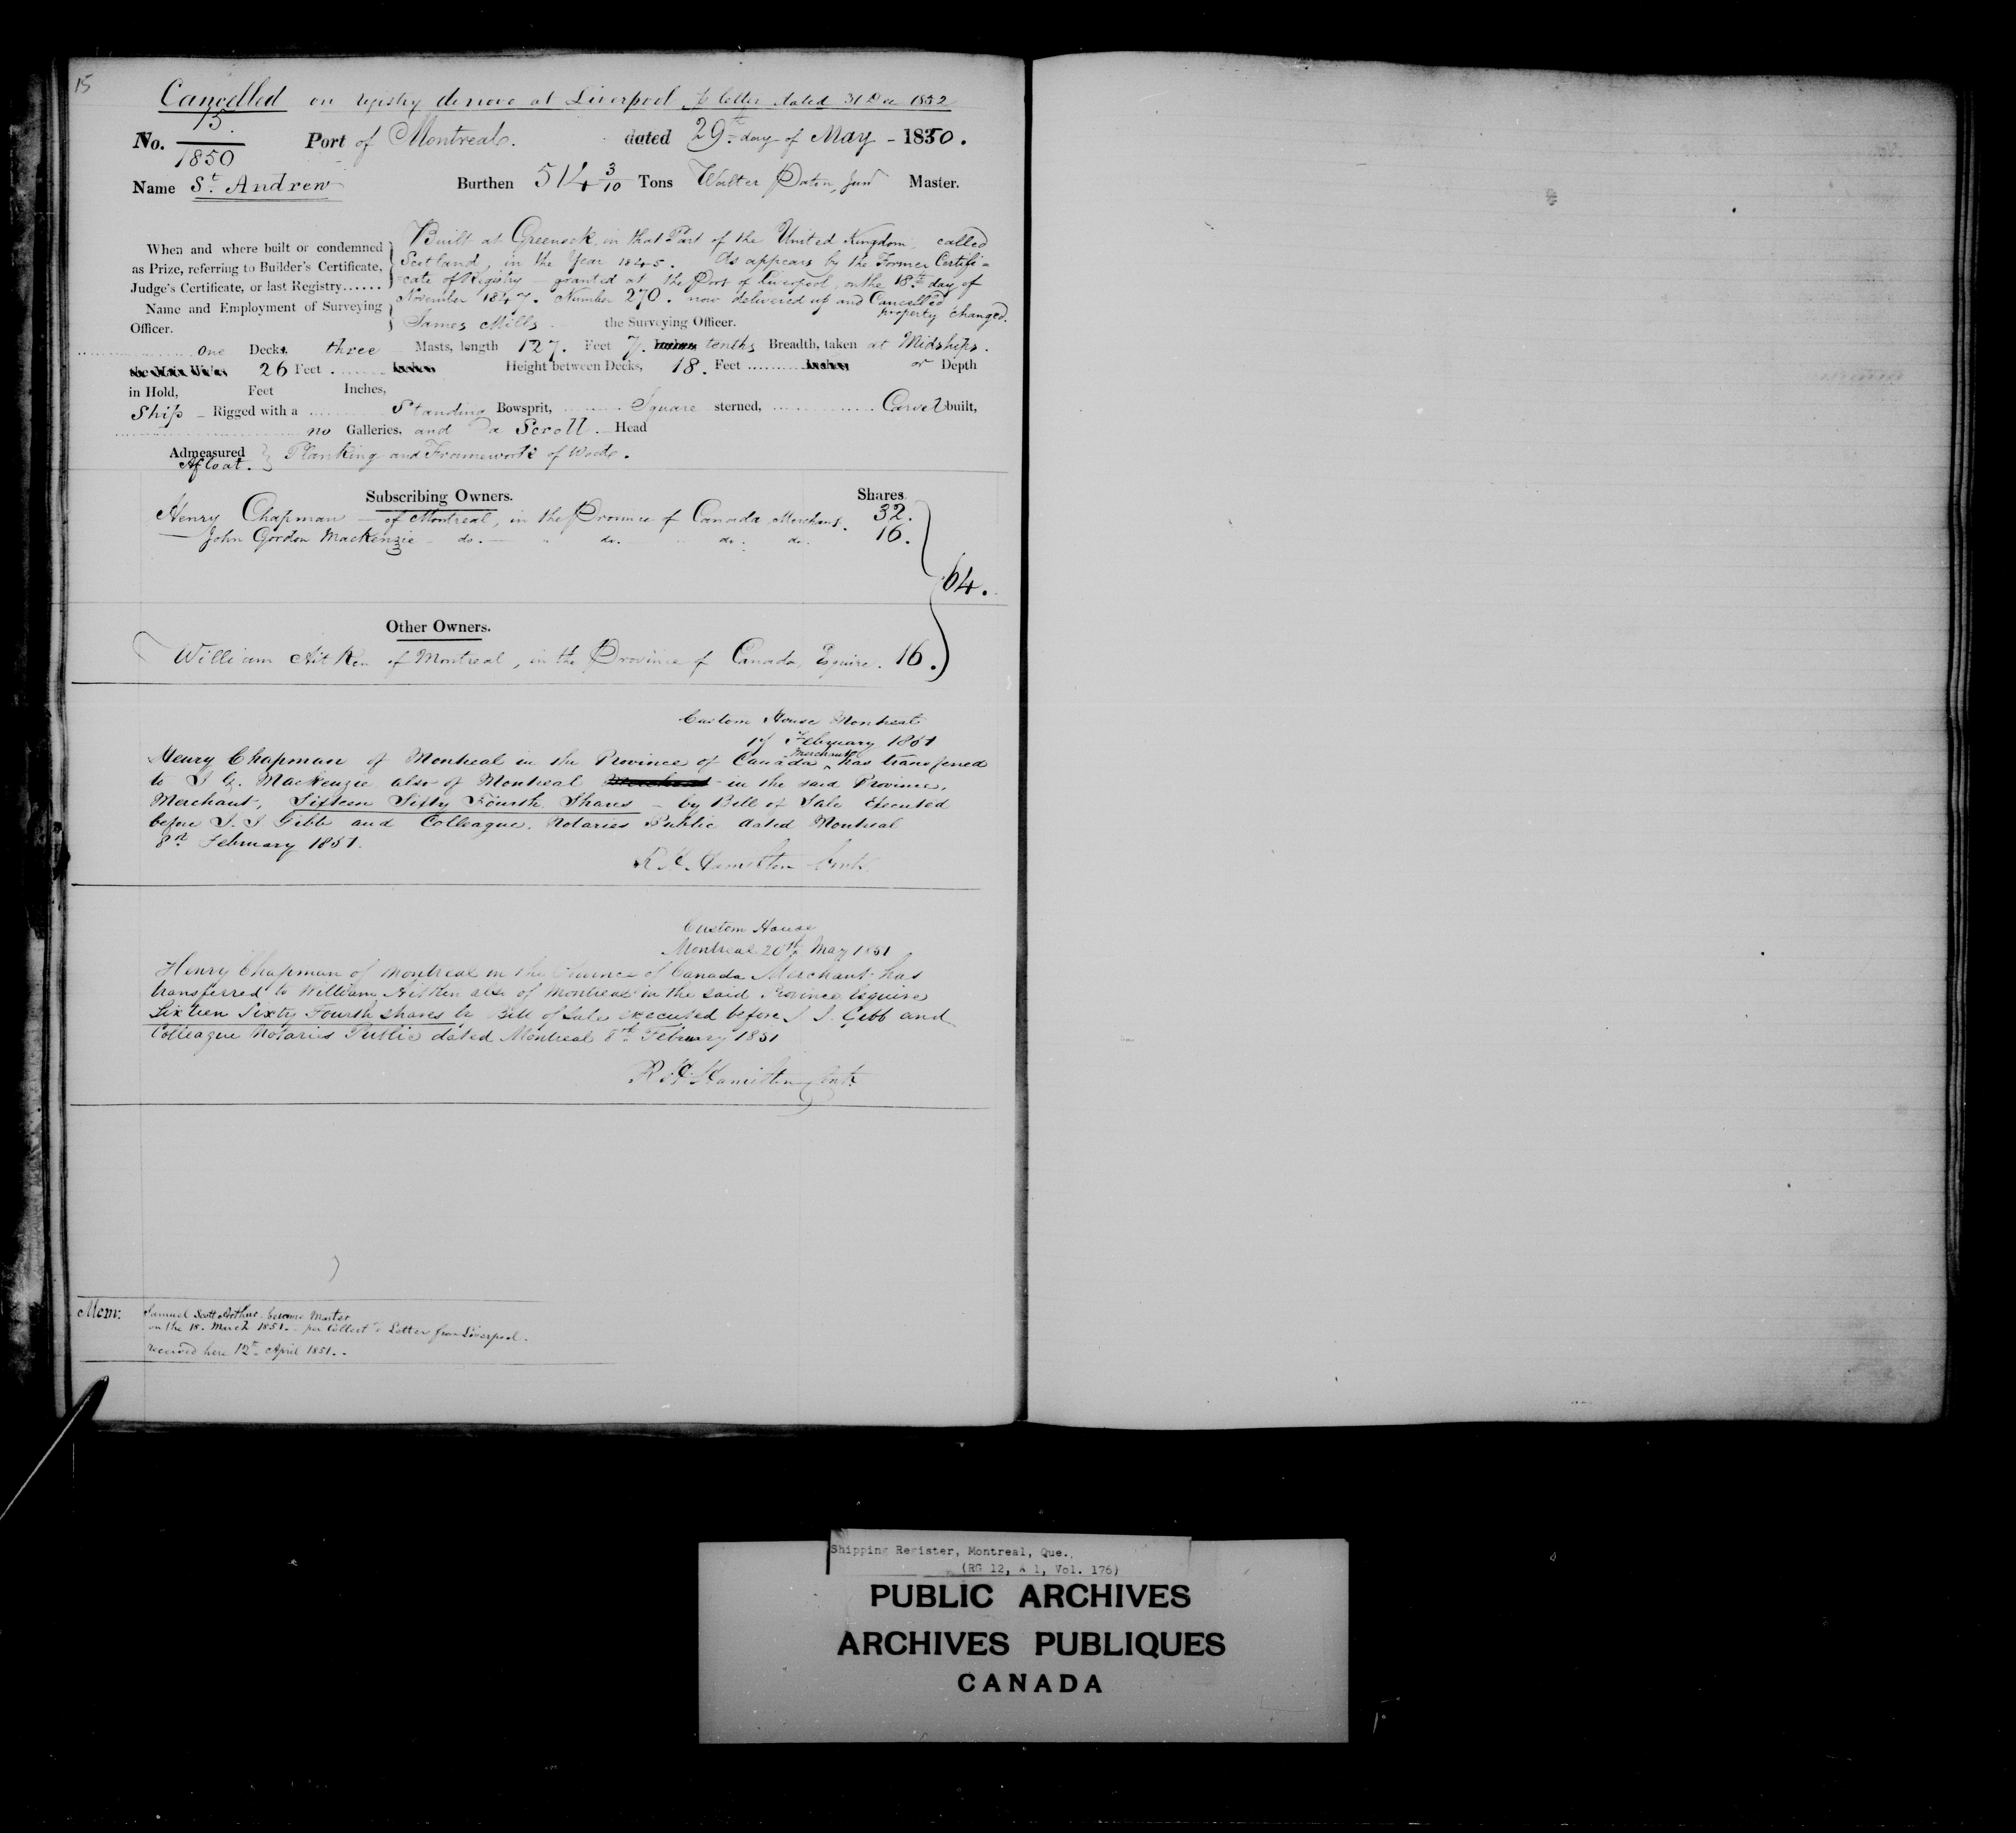 15
Cancelled on registry de novo at Liverpool p letter dated 31 Dec 1852
No. 15/1850 Port of Montreal. dated 29th day of May - 1850.
Name St. Andrew Burthen 514 3/10 Tons Walter Paton, Junr Master.
When and where built or condemned as Prize, referring to Builder's Certificate, Judge's Certificate, or last Registry......
Built at Greenock, in that Part of the United Kingdom, called
Scotland, in the Year 1845. As appears by the Former Certifi=
=cate of Registry granted at the Port of Liverpool, on the 18th day of
November 1847. Number 270. now delivered up and Cancelled
property changed.
Name and Employment of Surveying Officer.
James Mills. the Surveying Officer.
one Decks, three Masts, length 127. Feet 7. tenths Breadth, taken at Midships.
26 Feet ........ Height between Decks, 18. Feet ......... or Depth
in Hold, Feet Inches,
Ship - Rigged with a Standing Bowsprit, Square sterned, Carvel built,
no Galleries, and a Scroll. Head
Admeasured Afloat. } Planking and Framework of Wood.
Subscribing Owners. Shares
Henry Chapman - of Montreal, in the Province of Canada Merchant. 32.
John Gordon Mackenzie - do. - " do. " do. do. 16.
64.
Other Owners.
William Aitken of Montreal, in the Province of Canada Esquire. 16.
Custom House Montreal
17 February 1851
Henry Chapman of Montreal in the Province of Canada ^ Merchant has transferred
to J G. Mackenzie also of Montreal in the said Province,
Merchant, Sixteen Sixty Fourth Shares - by Bill of Sale Executed
before J. J Gibb and Colleague, Notaries Public dated Montreal
8th February 1851.
R H. Hamilton Contr.
Custom House
Montreal 20th May 1851
Henry Chapman of Montreal in the Province of Canada Merchant has
transferred to William Aitken also of Montreal in the said Province Esquire
Sixteen Sixty Fourth shares by Bill of Sale executed before J J. Gibb and
Colleague Notaries Public dated Montreal 8th February 1851
R H. Hamilton Contr.
Mem: Samuel Scott Arthur became Master
on the 18. March 1851. - per Collectr's Letter from Liverpool.
received here 12th April 1851. -
Shipping Register, Montreal, Que.,
(RG 12, A 1, Vol. 176)
PUBLIC ARCHIVES
ARCHIVES PUBLIQUES
CANADA